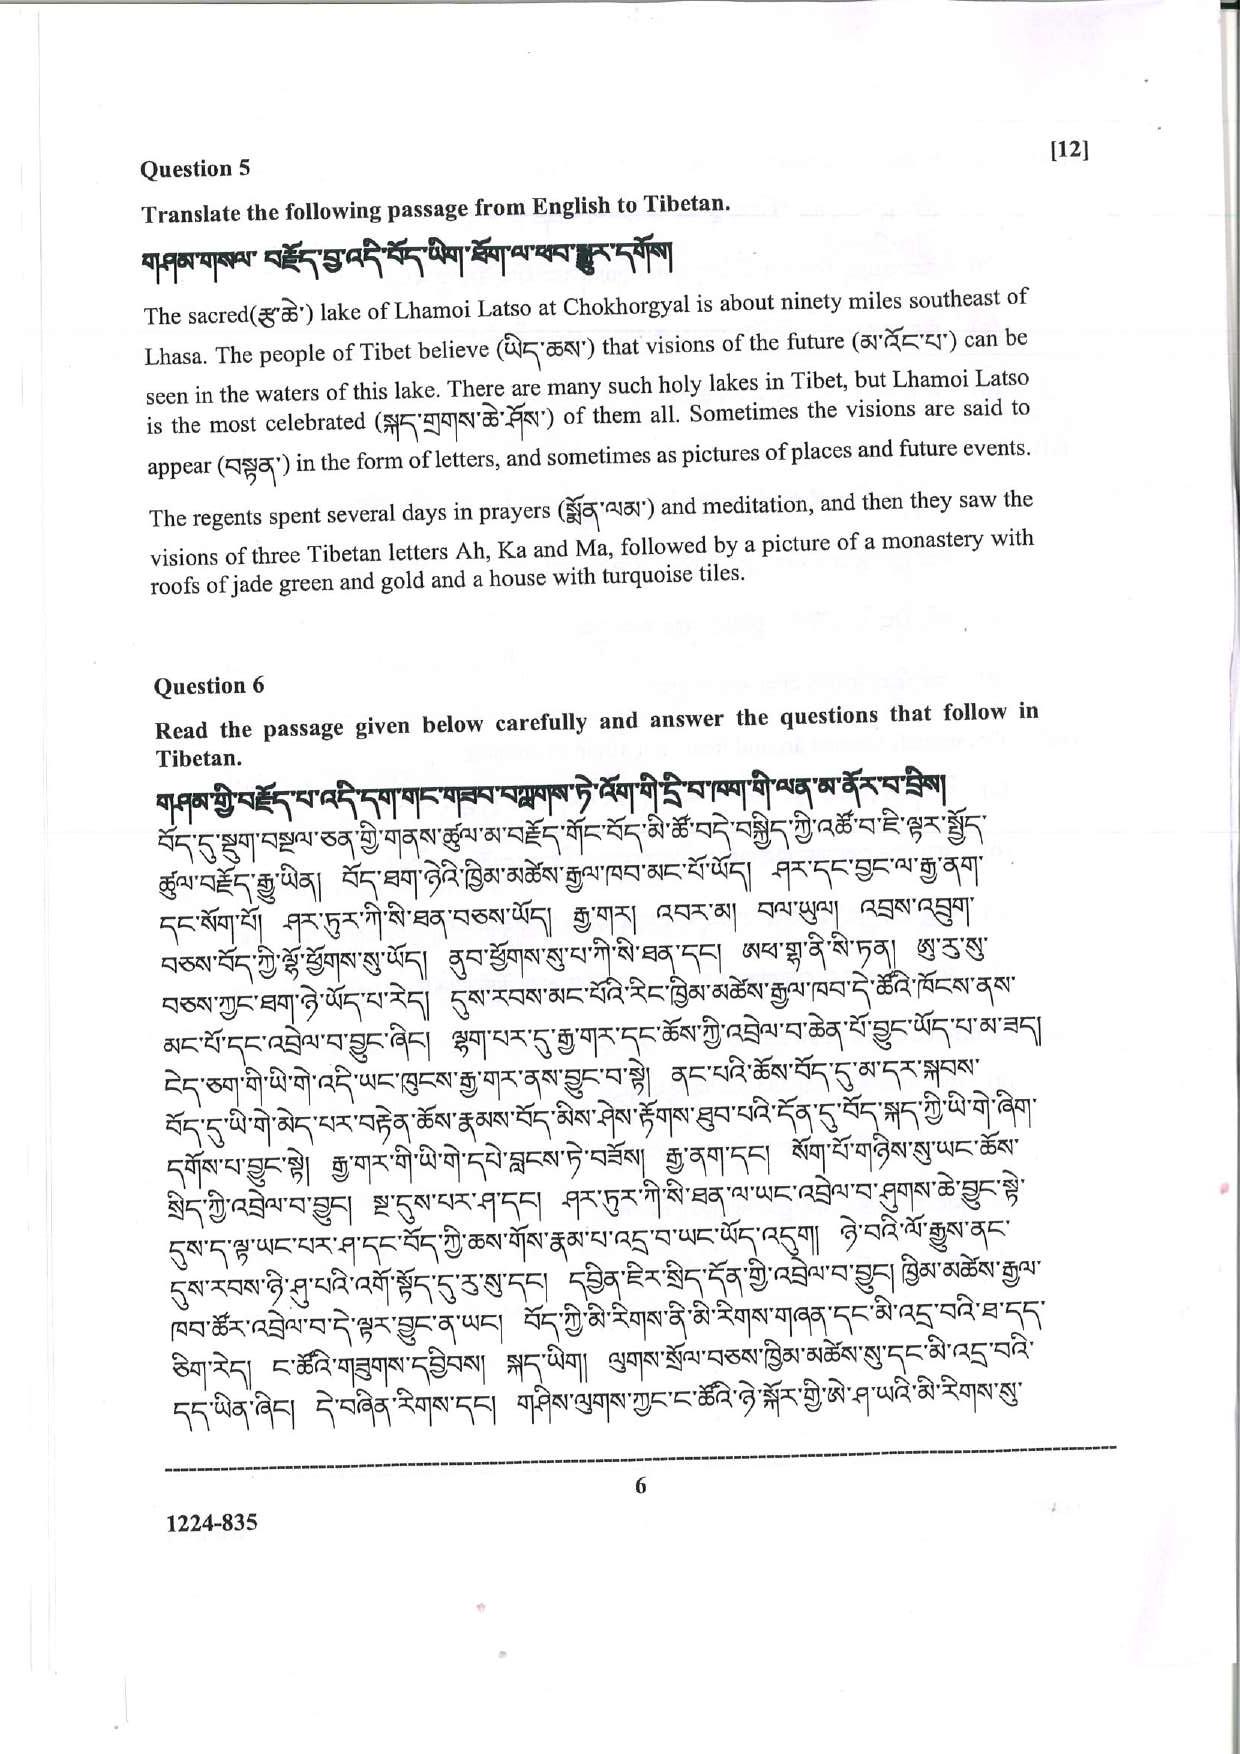 [12]
Question 5
Translate the following passage from English to Tibetan.
གཤམ་གསལ་ བརྗོད་བྱ་འདི་བོད་ཡིག་ཐོག་ལ་ཕབ་སྒྱུར་དགོས།
The sacred(རྩ་ཆེ་) lake of Lhamoi Latso at Chokhorgyal is about ninety miles southeast of
Lhasa. The people of Tibet believe (ཡིད་ཆས་) that visions of the future (མ་འོང་པ་) can be
seen in the waters of this lake. There are many such holy lakes in Tibet, but Lhamoi Latso
is the most celebrated (སྐད་གྲགས་ཆེ་ཤོས་) of them all. Sometimes the visions are said to
appear (བསྟན་) in the form of letters, and sometimes as pictures of places and future events.
The regents spent several days in prayers (སྨོན་ལམ་) and meditation, and then they saw the
visions of three Tibetan letters Ah, Ka and Ma, followed by a picture of a monastery with
roofs of jade green and gold and a house with turquoise tiles.
Question 6
Read the passage given below carefully and answer the questions that follow in
Tibetan.
གཤམ་གྱི་བརྗོད་པ་འདི་དག་གང་གཟབ་བཀླགས་ཏེ་འོག་གི་དྲི་བ་ཁག་གི་ལན་མ་ནོར་བ་བྲིས།
བོད་དུ་སྡུག་བསྔལ་ཅན་གྱི་གནས་ཚུལ་མ་བརྗོད་གོང་བོད་མི་ཚོ་བདེ་བསྐྱིད་ཀྱི་འཚོ་བ་ཇི་ལྟར་སྤྱོད་
ཚུལ་བརྗོད་རྒྱུ་ཡིན། བོད་ཐག་ཉེའི་ཁྱིམ་མཚེས་རྒྱལ་ཁབ་མང་པོ་ཡོད། ཤར་དང་བྱང་ལ་རྒྱ་ནག་
དང་སོག་པོ། ཤར་ཏུར་ཀི་སི་ཐན་བཅས་ཡོད། རྒྱ་གར། འབར་མ། བལ་ཡུལ། འབྲས་འབྲུག་
བཅས་བོད་ཀྱི་ལྷོ་ཕྱོགས་སུ་ཡོད། ནུབ་ཕྱོགས་སུ་པ་ཀི་སི་ཐན་དང། ཨཕ་གྷ་ནི་སི་ཏན། ཨུ་རུ་སུ་
བཅས་ཀྱང་ཐག་ཉེ་ཡོད་པ་རེད། དུས་རབས་མང་པོའི་རིང་ཁྱིམ་མཚེས་རྒྱལ་ཁབ་དེ་ཚོའི་ཁོངས་ནས་
མང་པོ་དང་འབྲེལ་བ་བྱུང་ཞིང། ལྷག་པར་དུ་རྒྱ་གར་དང་ཆོས་ཀྱི་འབྲེལ་བ་ཆེན་པོ་བྱུང་ཡོད་པ་མ་ཟད།
ངེད་ཅག་གི་ཡི་གེ་འདི་ཡང་ཁུངས་རྒྱ་གར་ནས་བྱུང་བ་སྟེ། ནང་པའི་ཆོས་བོད་དུ་མ་དར་སྐབས་
བོད་དུ་ཡི་གེ་མེད་པར་བརྟེན་ཆོས་རྣམས་བོད་མིས་ཤེས་རྟོགས་ཐུབ་པའི་དོན་དུ་བོད་སྐད་ཀྱི་ཡི་གེ་ཞིག་
དགོས་པ་བྱུང་སྟེ། རྒྱ་གར་གི་ཡི་གེ་དཔེ་བླངས་ཏེ་བཟོས། རྒྱ་ནག་དང། སོག་པོ་གཉིས་སུ་ཡང་ཆོས་
སྲིད་ཀྱི་འབྲེལ་བ་བྱུང། སྔ་དུས་པར་ཤ་དང། ཤར་ཏུར་ཀི་སི་ཐན་ལ་ཡང་འབྲེལ་བ་ཤུགས་ཆེ་བྱུང་སྟེ་
དུས་ད་ལྟ་ཡང་པར་ཤ་དང་བོད་ཀྱི་ཆས་གོས་རྣམ་པ་འདྲ་བ་ཡང་ཡོད་འདུག། ཉེ་བའི་ལོ་རྒྱུས་ནང་
དུས་རབས་ཉི་ཤུ་པའི་འགོ་སྟོད་དུ་རུ་སུ་དང། དབྱིན་ཇིར་སྲིད་དོན་གྱི་འབྲེལ་བ་བྱུང། ཁྱིམ་མཚེས་རྒྱལ་
ཁབ་ཚོར་འབྲེལ་བ་དེ་ལྟར་བྱུང་ན་ཡང། བོད་ཀྱི་མི་རིགས་ནི་མི་རིགས་གཞན་དང་མི་འདྲ་བའི་ཐ་དད་
ཅིག་རེད། ང་ཚོའི་གཟུགས་དབྱིབས། སྐད་ཡིག། ལུགས་སྲོལ་བཅས་ཁྱིམ་མཚེས་སུ་དང་མི་འདྲ་བའི་
དད་ཡིན་ཞིང། དེ་བཞིན་རིགས་དང། གཤིས་ལུགས་ཀྱང་ང་ཚོའི་ཉེ་སྐོར་གྱི་ཨེ་ཤ་ཡའི་མི་རིགས་སུ་
6
1224-835